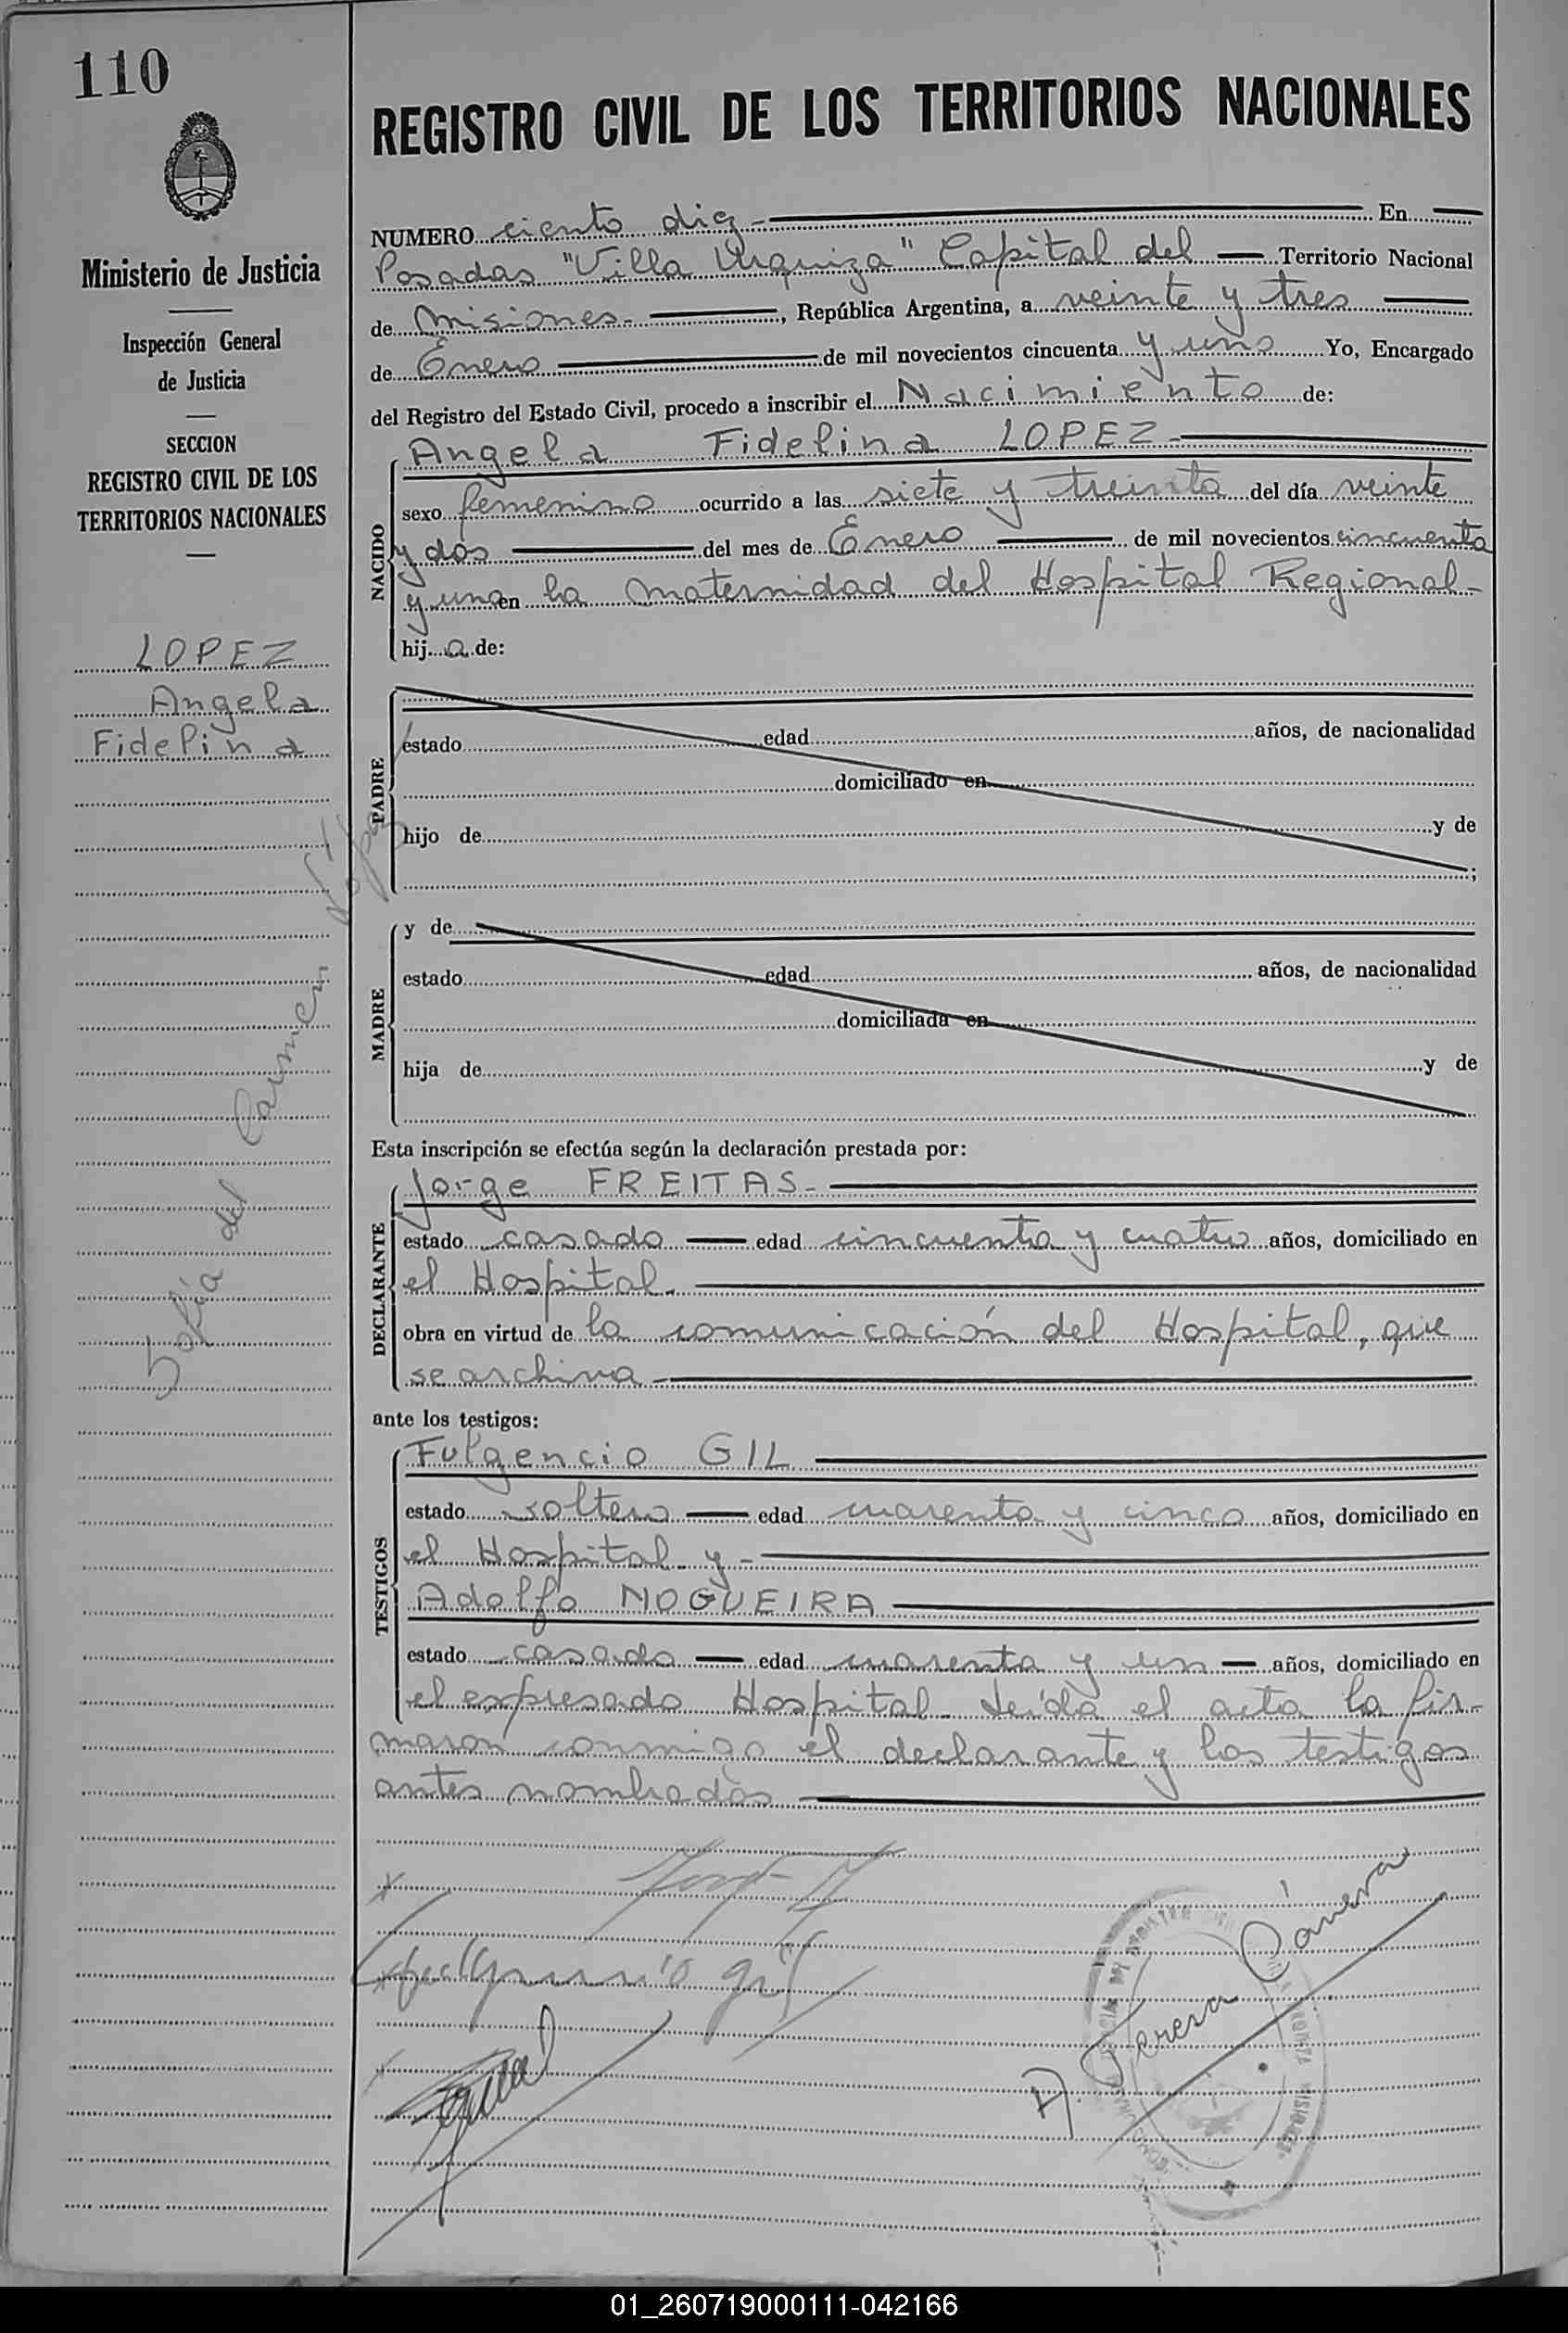 110
Ministerio de Justicia
Inspección General
de Justicia
SECCION
REGISTRO CIVIL DE LOS
TERRITORIOS NACIONALES
LOPEZ
Angela
Fidelina
Sofía del Carmen López
REGISTRO CIVIL DE LOS TERRITORIOS NACIONALES
NUMERO ciento diez En
Posadas "Villa Urquiza" Capital del Territorio Nacional
de Misiones, República Argentina, a veinte y tres
de Enero de mil novecientos cincuenta y uno Yo, Encargado
del Registro del Estado Civil, procedo a inscribir el Nacimiento de:
NACIDO
Angela Fidelina LOPEZ
sexo femenino ocurrido a las siete y treinta del día veinte
y dos del mes de Enero de mil novecientos cincuenta
y uno en la Maternidad del Hospital Regional
hija de:
PADRE
estado edad años, de nacionalidad
domiciliado en
hijo de y de
;
MADRE
y de
estado edad años, de nacionalidad
domiciliada en
hija de y de
Esta inscripción se efectúa según la declaración prestada por:
DECLARANTE
Jorge FREITAS
estado casado edad cincuenta y cuatro años, domiciliado en
el Hospital.
obra en virtud de la comunicación del Hospital, que
se archiva
ante los testigos:
TESTIGOS
Fulgencio GIL
estado soltero edad cuarenta y cinco años, domiciliado en
el Hospital y
Adolfo NOGUEIRA
estado casado edad cuarenta y un años, domiciliado en
el expresado Hospital. Leída el acta la fir-
maron conmigo el declarante y los testigos
antes nombrados
A. Teresa Cánera
01_260719000111-042166